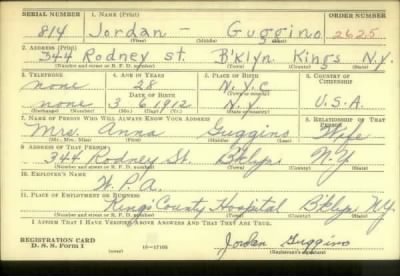 SERIAL NUMBER 1. NAME (Print) ORDER NUMBER
814 Jordan — Guggino 2625
(First) (Middle) (Last)
2. ADDRESS (Print)
344 Rodney St. B'klyn Kings N.Y.
(Number and street or R. F. D. number) (Town) (County) (State)
3. TELEPHONE 4. AGE IN YEARS 5. PLACE OF BIRTH 6. COUNTRY OF CITIZENSHIP
none 28 N.Y.C
DATE OF BIRTH (Town or county)
none 3 6 1912 N.Y. U.S.A.
(Exchange) (Number) (Mo.) (Day) (Yr.) (State or country)
7. NAME OF PERSON WHO WILL ALWAYS KNOW YOUR ADDRESS 8. RELATIONSHIP OF THAT PERSON
Mrs. Anna Guggino Wife
(Mr., Mrs., Miss) (First) (Middle) (Last)
9. ADDRESS OF THAT PERSON
344 Rodney St. B'klyn N.Y.
(Number and street or R. F. D. number) (Town) (County) (State)
10. EMPLOYER'S NAME
W.P.A.
11. PLACE OF EMPLOYMENT OR BUSINESS
Kings County Hospital B'klyn N.Y.
(Number and street or R. F. D. number) (Town) (County) (State)
I AFFIRM THAT I HAVE VERIFIED ABOVE ANSWERS AND THAT THEY ARE TRUE.
REGISTRATION CARD
D. S. S. Form 1 (over) 16—17105 Jordan Guggino
(Registrant's signature)